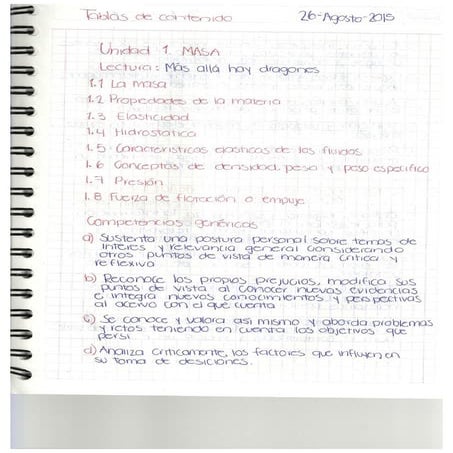 Tablas de contenido 26-Agosto-2015
Unidad 1. MASA
Lectura: Más allá hay dragones
1.1 La masa
1.2 Propiedades de la materia
1.3 Elasticidad
1.4 Hidrostatica
1.5 Caracteristicas elasticas de los fluidos
1.6 Conceptos de densidad, peso y peso especifico
1.7 Presión
1.8 Fuerza de flotación o empuje
Competencias genéricas
a) Sustenta una postura personal sobre temas de
interes y relevancia general considerando
otros puntos de vista de manera critica y
reflexiva
b) Reconoce los propios prejucios, modifica sus
puntos de vista al conocer nuevas evidencias
e integra nuevos conocimientos y perspectivas
al acervo con el que cuenta
c) Se conoce y valora asi mismo y aborda problemas
y retos teniendo en cuenta los objetivos que
persi
d) Analiza criticamente los factores que influyen en
su toma de desiciones.